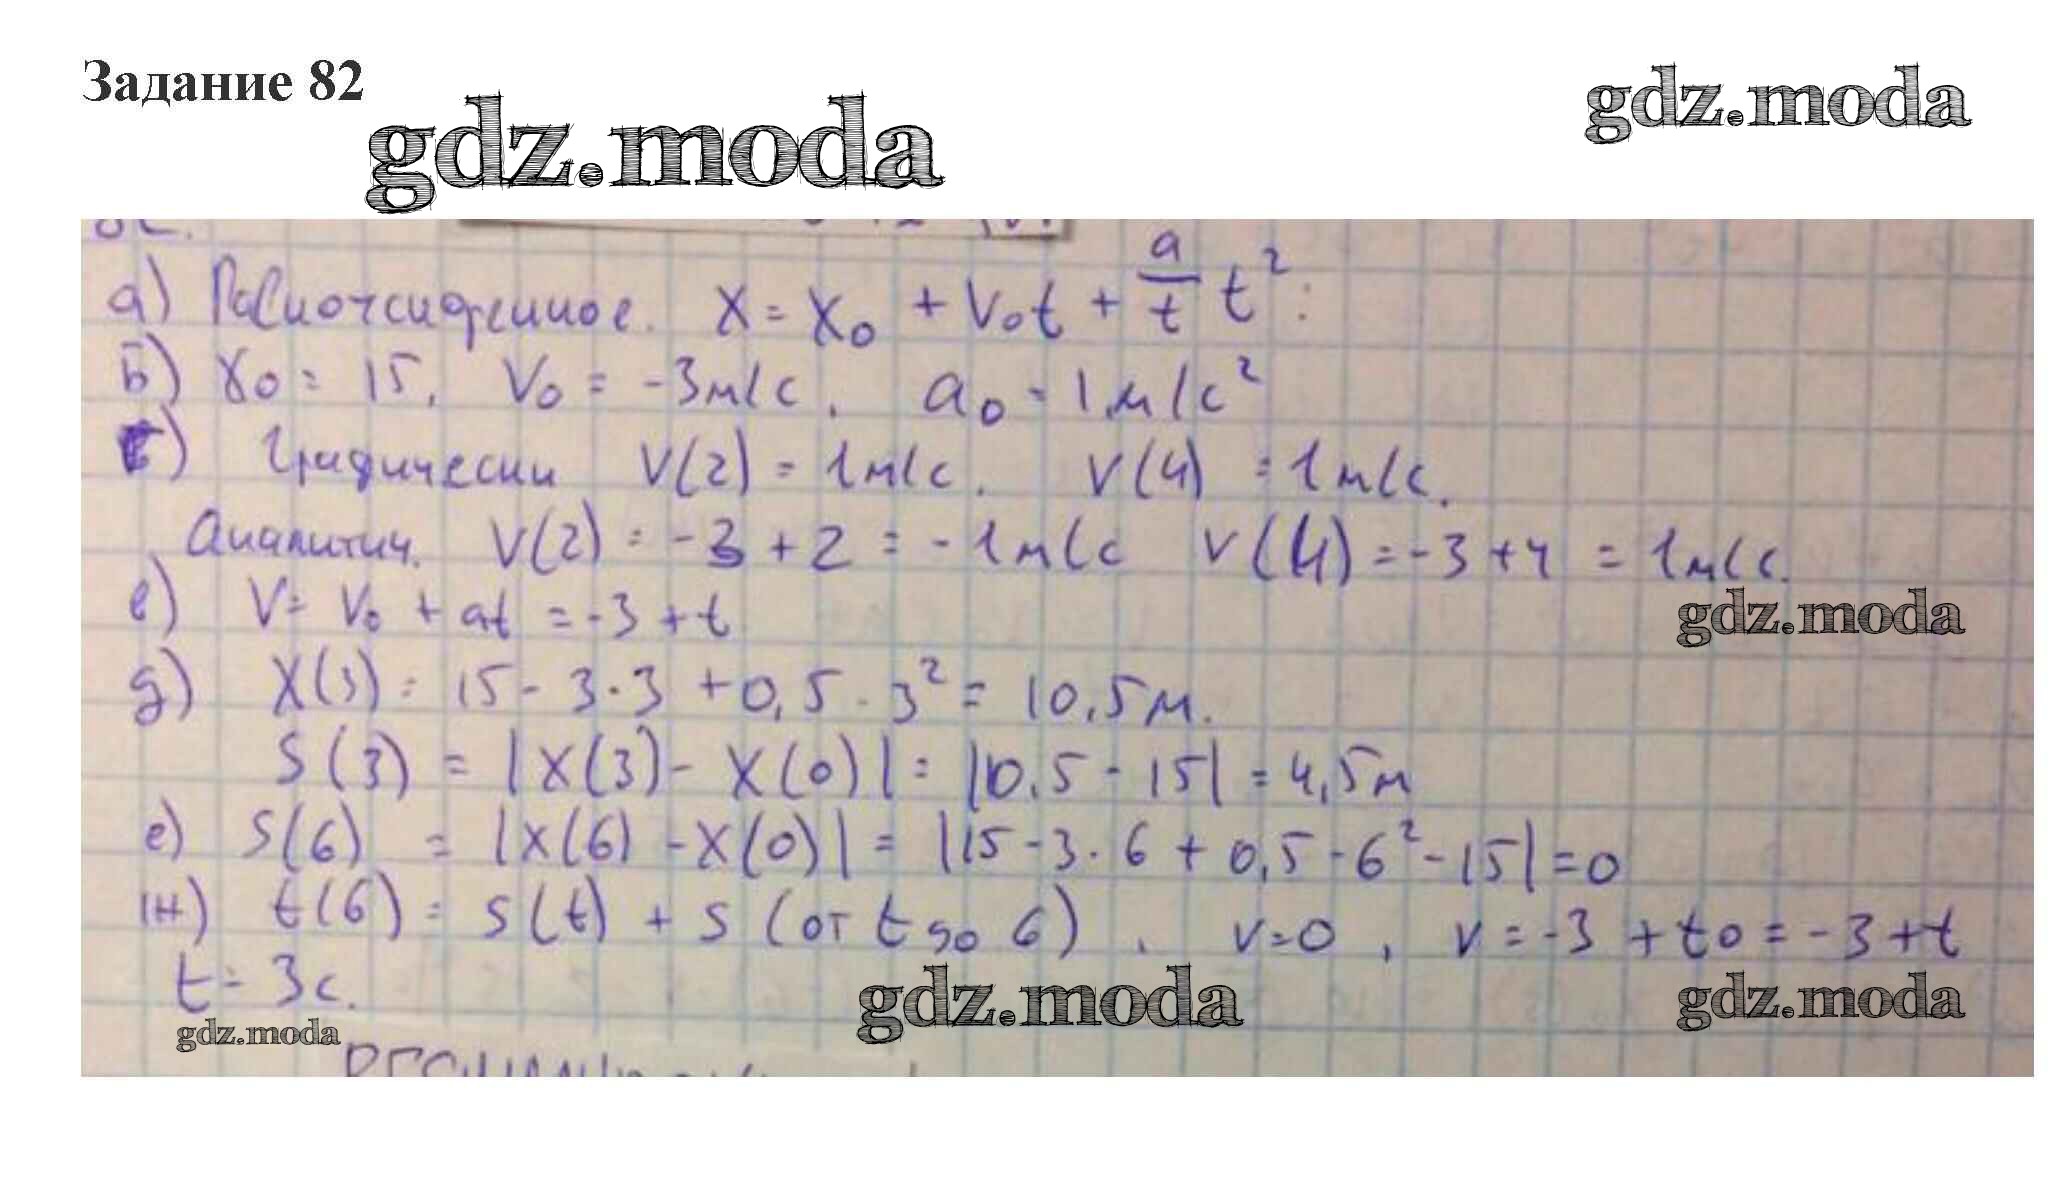 Задание 82
gdz.moda
gdz.moda
82.
а) Равноускоренное. x = x₀ + v₀t + a/t t²:
Б) x₀ = 15, v₀ = -3м/с, a₀ = 1м/с²
в) Графически v(2) = 1м/с. v(4) = 1м/с.
Аналитич. v(2) = -3 + 2 = -1м/с v(4) = -3 + 4 = 1м/с.
gdz.moda
в) v = v₀ + at = -3 + t
д) x(3) = 15 - 3·3 + 0,5·3² = 10,5м.
S(3) = |x(3) - x(0)| = |10,5 - 15| = 4,5м
е) S(6) = |x(6) - x(0)| = |15 - 3·6 + 0,5·6² - 15| = 0
н) t(6) = S(t) + S (от t до 6), v=0, v = -3 + t0 = -3 + t
t = 3с.
gdz.moda
gdz.moda
gdz.moda